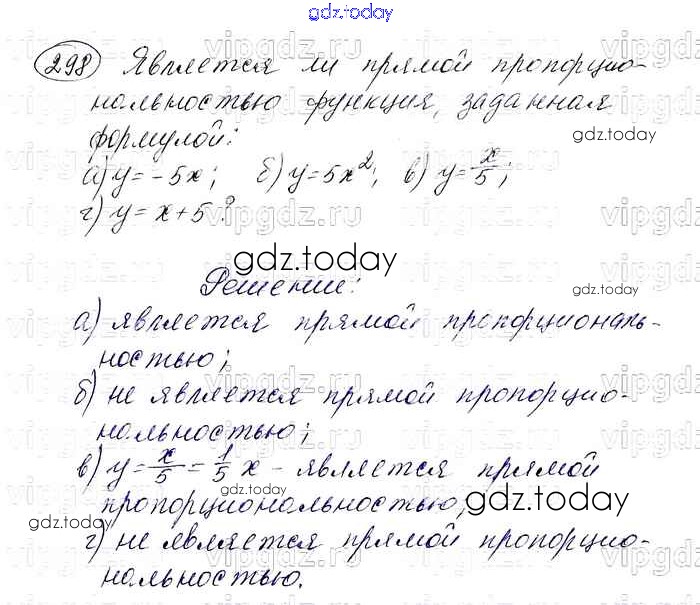 gdz.today
298 Является ли прямой пропорцио-
нальностью функция, заданная
формулой:
gdz.today
а) y = -5x; б) y = 5x²; в) y = x/5;
г) y = x + 5?
gdz.today
Решение:
gdz.today
а) является прямой пропорциональ-
ностью;
б) не является прямой пропорцио-
gdz.today
нальностью;
в) y = x/5 = 1/5 x - является прямой
gdz.today
пропорциональностью;
gdz.today
gdz.today
г) не является прямой пропорцио-
нальностью.
vipgdz.ru